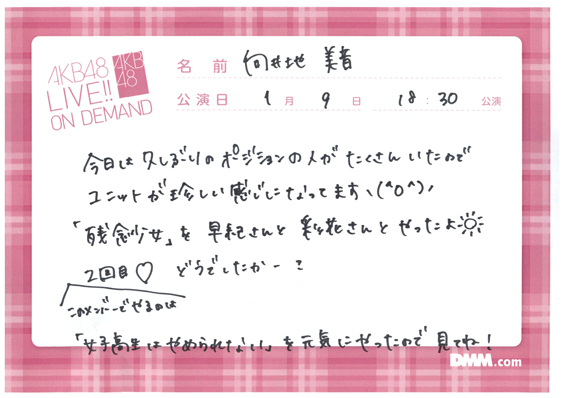 AKB48
LIVE!!
ON DEMAND
AKB
48
名前 向井地 美音
公演日 1月 9日 18:30 公演
今日は久しぶりのポジションの人がたくさんいたので
ユニットが珍しい感じになってます\(^O^)/
「残念少女」を早紀さんと彩花さんとやったよ☀
2回目♡ どうでしたかー?
このメンバーでやるのは
「女子高生はやめられない」を元気にやったので見てね!
DMM.com